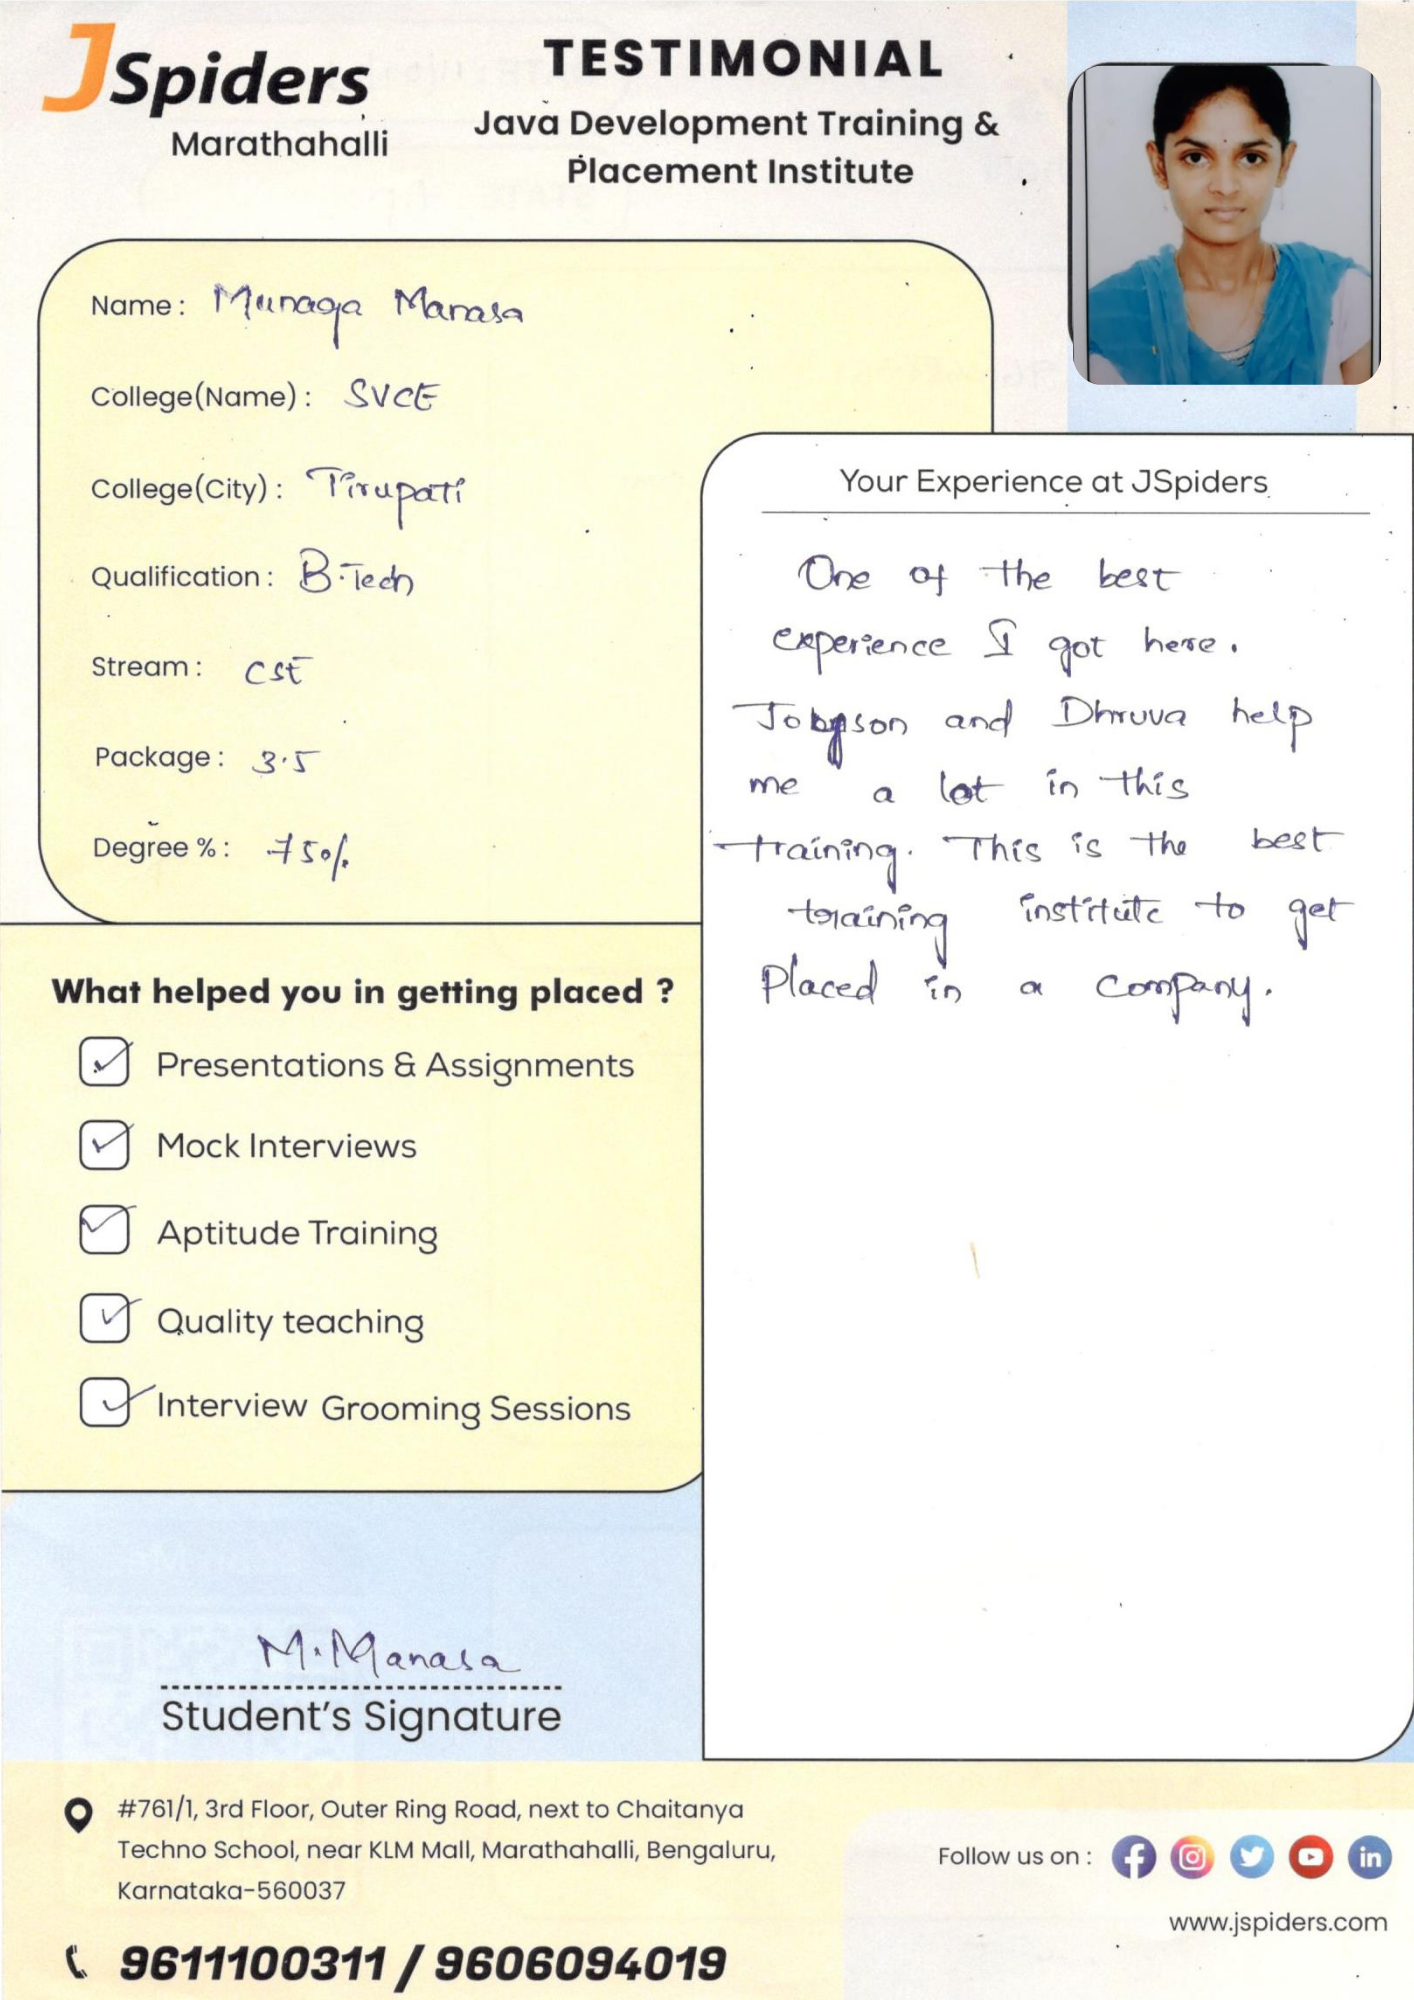 JSpiders
Marathahalli
TESTIMONIAL
Java Development Training &
Placement Institute
Name : Munaga Manasa
College(Name) : SVCE
College(City) : Tirupati
Qualification : B.Tech
Stream : CSE
Package : 3.5
Degree % : 75%
What helped you in getting placed ?
Presentations & Assignments
Mock Interviews
Aptitude Training
Quality teaching
Interview Grooming Sessions
M.Manasa
Student's Signature
Your Experience at JSpiders
One of the best
experience I got here.
and Dhruva help
me a lot in this
training. This is the best
training institute to get
Placed in a company.
#761/1, 3rd Floor, Outer Ring Road, next to Chaitanya
Techno School, near KLM Mall, Marathahalli, Bengaluru,
Karnataka-560037
9611100311 / 9606094019
Follow us on :
www.jspiders.com